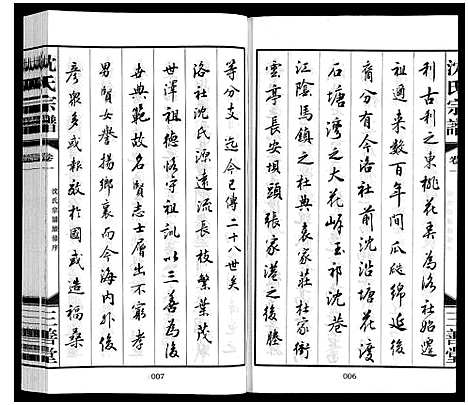 沈氏宗譜
卷一
三善堂
利古利之東桃花未為洛社始遷
祖通来数百年間瓜瓞綿延後
裔分有今洛社前沈沿塘花渡
石塘湾之大花岸玉祁沈巷
江陰馬鎮之杜典袁家莊杜家衖
雲亭長安坝頭張家港之後塍
006
等分支迄今已傳二十八世矣
洛社沈氏源遠流長枝繁葉茂
世澤祖德恪守祖訓以三善為後
世典範故名賢志士層出不窮孝
男賢女譽揚鄉里而今海内外俊
彦衆多或報效於國或造福桑
007
沈氏宗譜
卷一
沈氏宗譜續修序
三善堂